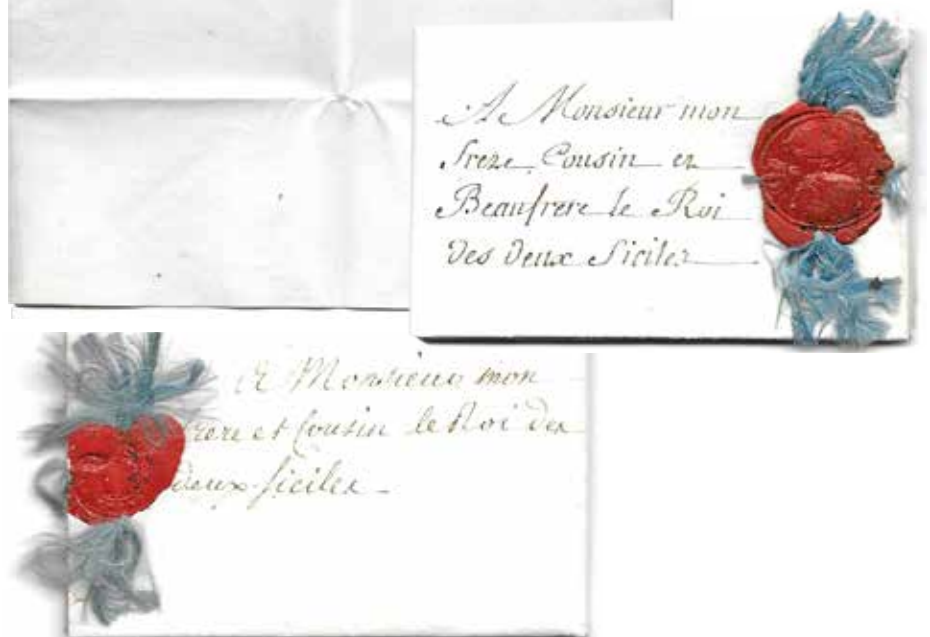 A Monsieur mon
frere Cousin et
Beaufrere le Roi
des deux Siciles
A Monsieur mon
frere et Cousin le Roi des
deux Siciles